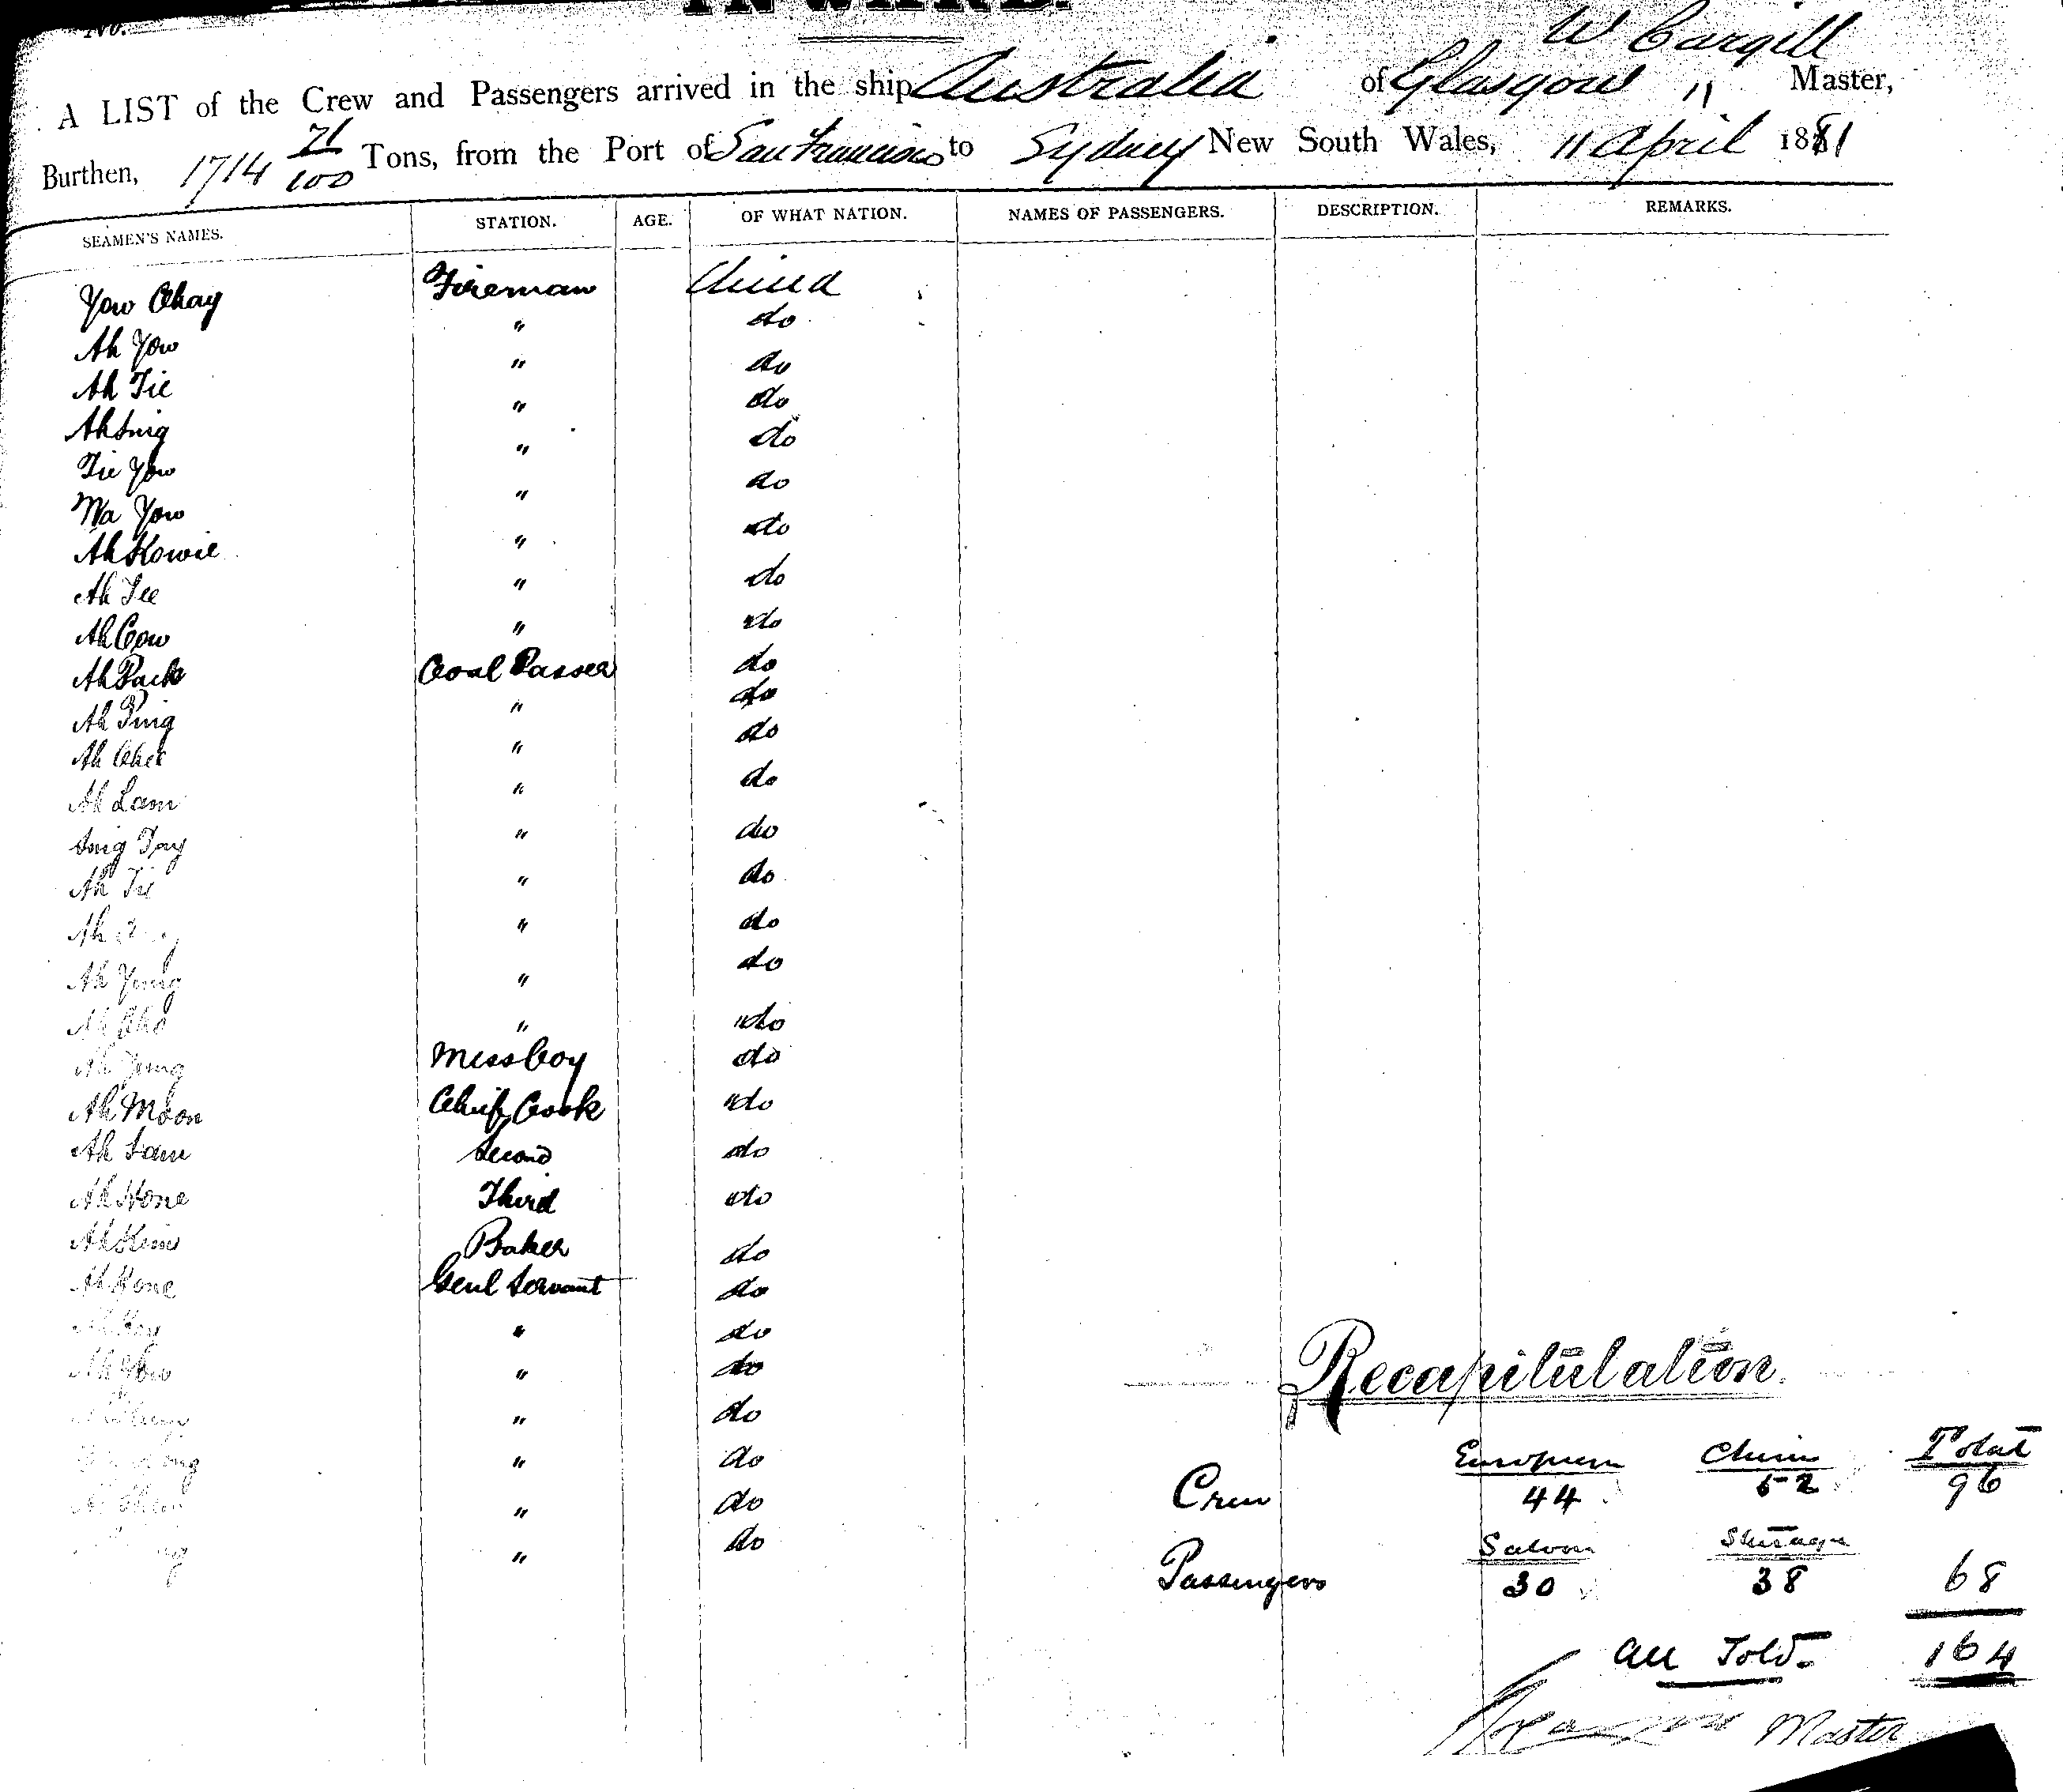 INWARD.
No.
W Cargill
A LIST of the Crew and Passengers arrived in the ship Australia of Glasgow " Master,
Burthen, 1714 71/100 Tons, from the Port of San Francisco to Sydney New South Wales, 11 April 1881
SEAMEN'S NAMES. STATION. AGE. OF WHAT NATION. NAMES OF PASSENGERS. DESCRIPTION. REMARKS.
Yow Chay Fireman China
Ah Yow " do
Ah Tie " do
Ah Sing " do
Tie Yow " do
Wa Yow " do
Ah Kowie " do
Ah Lee " do
Ah Cow " do
Ah Pack Coal Passer do
Ah Ping " do
Ah Chee " do
Ah Lam " do
Sing Tay " do
Ah Tie " do
Ah " do
Ah Yung " do
Ah Cho " do
Ah Messboy do
Ah Moon Chief Cook do
Ah Sam Second do
Ah Hone Third do
Ah Kim Baker do
Ah Hone Genl Servant do
Ah " do
Ah Yow " do
" do
" do
" do
" do
Recapitulation.
European China Total
Crew 44 52 96
Saloon Steerage
Passengers 30 38 68
All Told. 164
Master